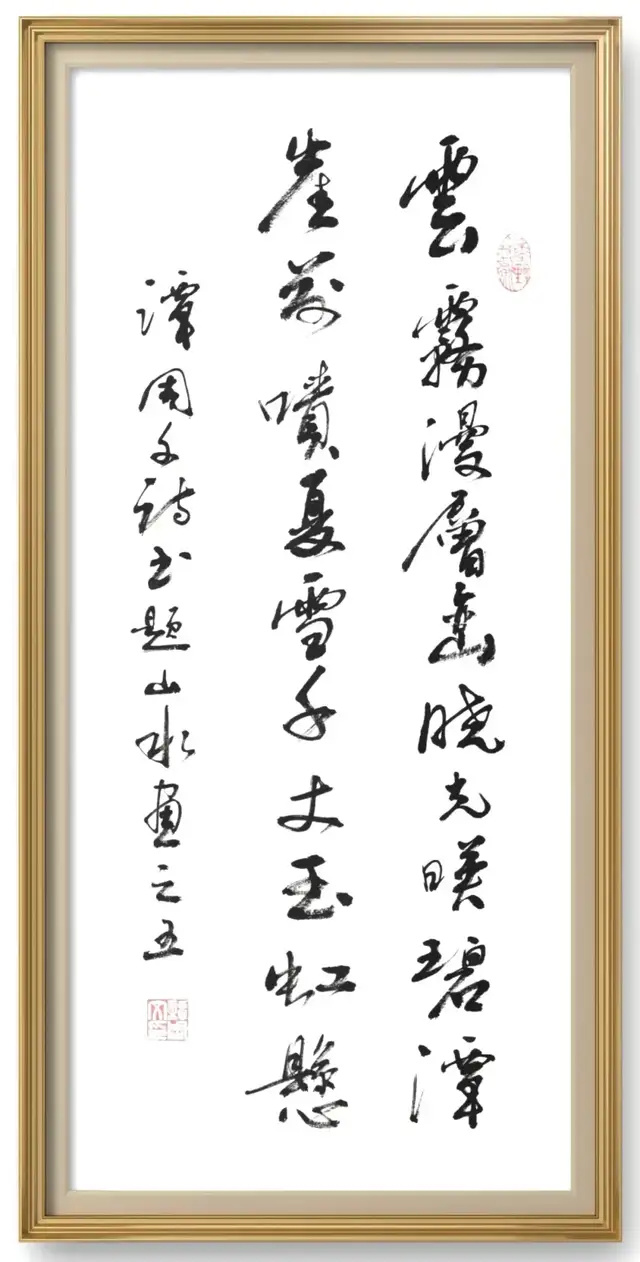 雲霧漫層巒曉光暎碧潭
崖前噴夏雪千丈玉虹懸
潭周文詩書題山水畫之五